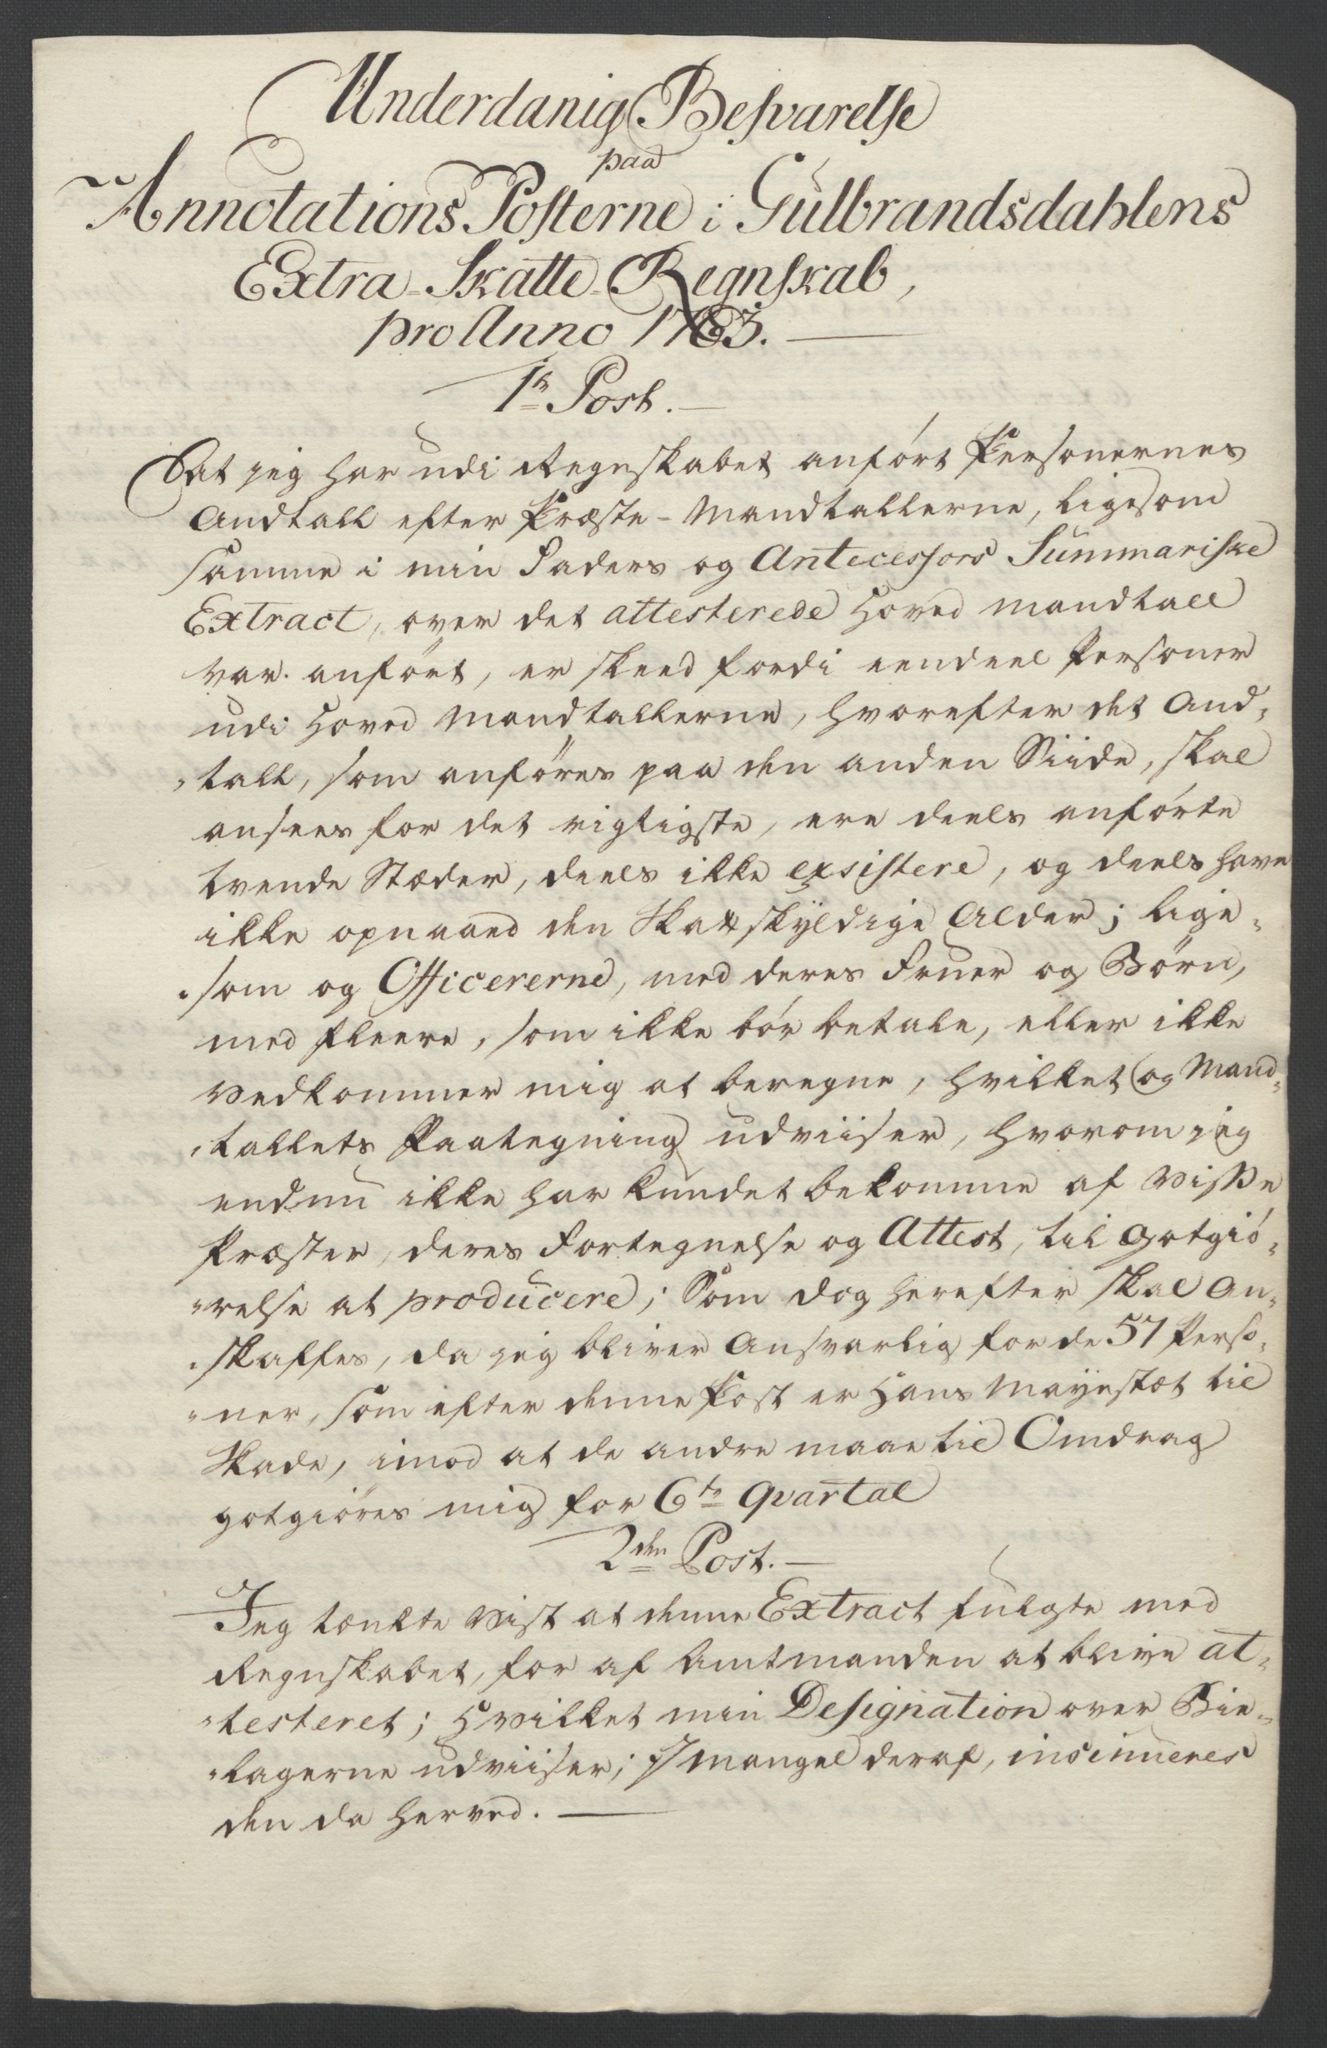 Underdanig Besvarelse
paa
Annotations Posterne i Gulbrandsdahlens
Extra-Skatte-Regnskab,
pro Anno 1763.
1te Post.
At jeg har udi Regnskabet anført Personernes
Andtall efter Præste-Mandtallerne, ligesom
samme i min Faders og Antecessors Summariske
Extract, over det attesterede Hoved Mandtall
var anført, er skeed fordi eendeel Personer
udi Hoved Mandtallerne, hvorefter det And-
tall, som anføres paa den anden Siide, skal
ansees for det rigtigste, ere deels anførte
tvende Stæder, deels ikke exsistere, og deels have
ikke opnaaed den Skatskyldige Alder; lige-
som og Officererne, med deres Fruer og Børn,
med fleere, som ikke bør betale, eller ikke
vedkommer mig at beregne, hvilket og Mand-
tallets Paategning udviiser, hvorom jeg
endnu ikke har kundet bekomme af visse
Præster, deres Fortegnelse og Attest, til Gotgiø-
relse at producere; Som dog herefter skal an-
skaffes, da jeg bliver Ansvarlig for de 57 Perso-
ner, som efter denne Post er Hans Mayestæt til
Skade, imod at de andre maae til Omdrag
gotgiøres mig for 6te Qvartal
2den Post.
Jeg tænkte vist at denne Extract fulgte med
Regnskabet, for af Amtmanden at blive at-
testeret; Hvilket min Designation over Bie-
lagerne udviiser; I mangel deraf, insinueres
den da herved.